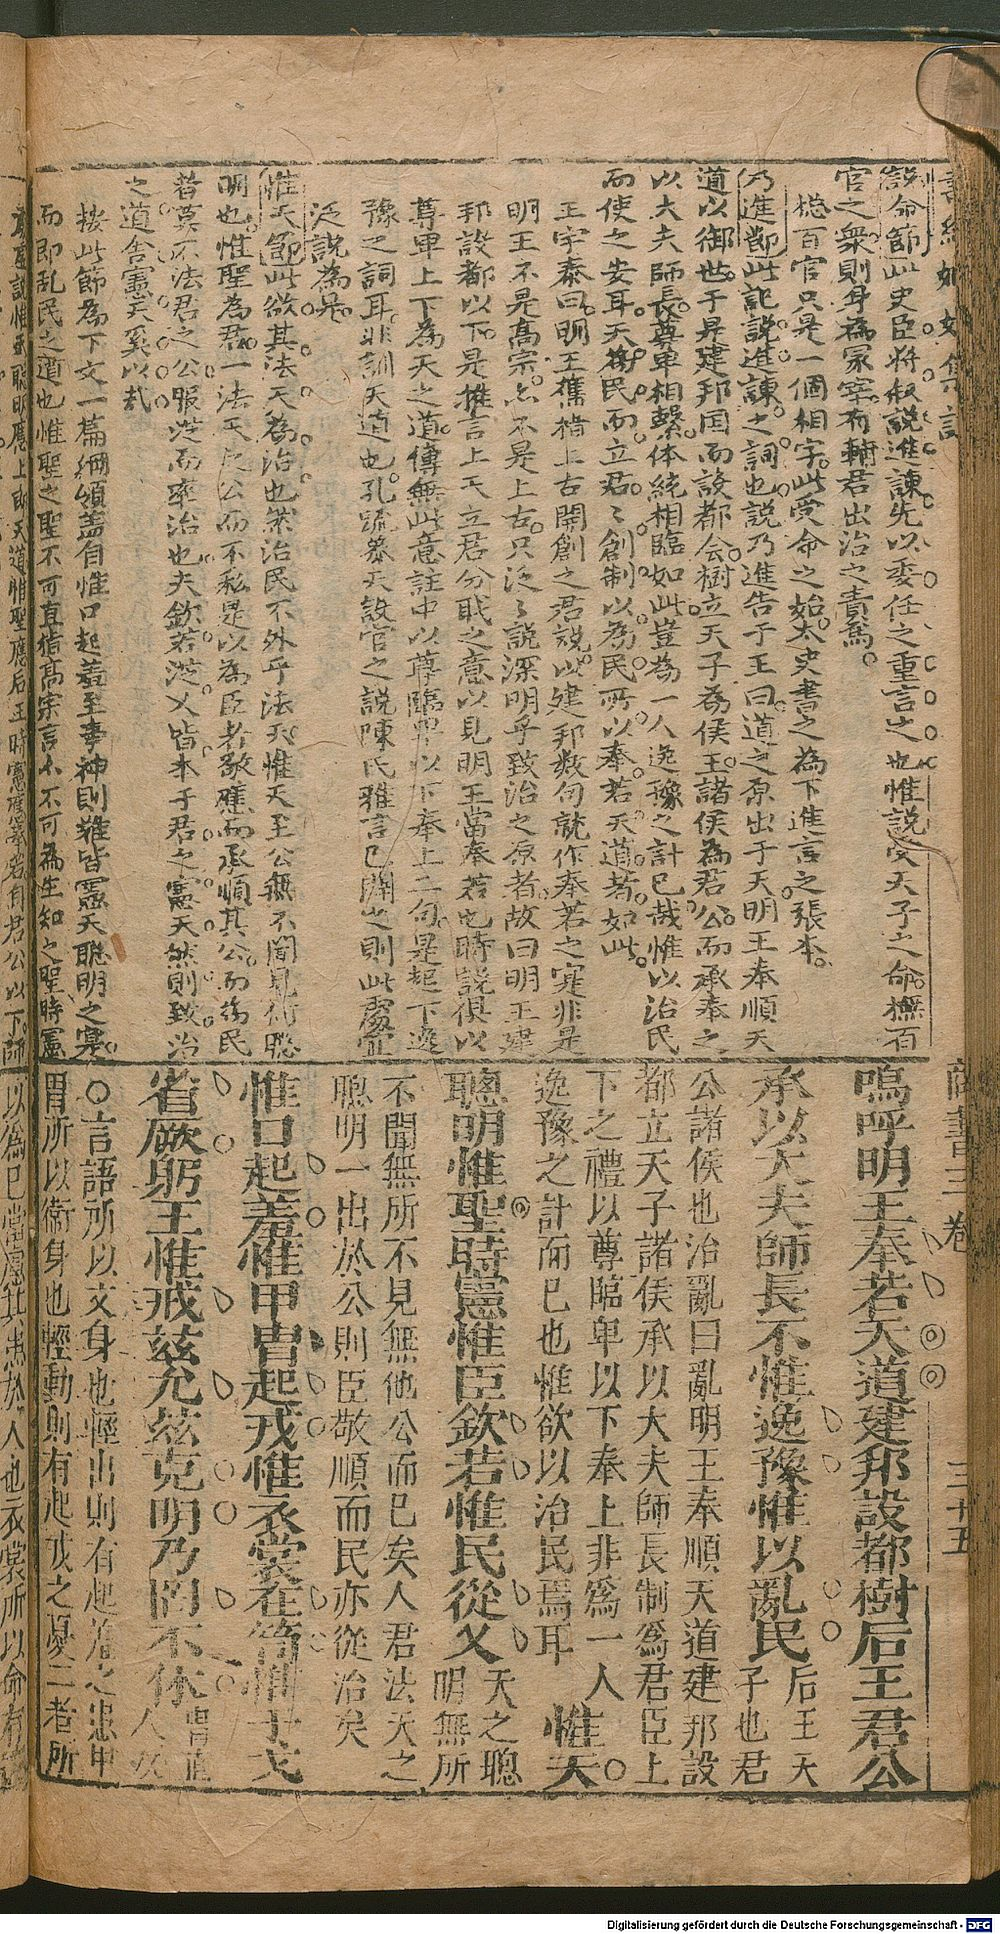 說命節此史臣將叙說進諫先以委任之重言之也惟說受天子之命㧾百
官之衆則身為冢宰有輔君出治之責焉
㧾百官只是一個相字此受命之始太史書之為下進言之張本
乃進節此記說進諫之詞也說乃進告于王曰道之原出于天明王奉順天
道以御世于是建邦国而設都会樹立天子為侯王諸侯為君公而承奉之
以大夫師長尊卑相繫体統相臨如此豈為一人逸豫之計已哉惟以治民
而使之安耳天為民而立君君創制以為民所以奉若天道者如此
王字泰曰明王舊指上古開創之君説以建邦数句就作奉若之寔非是
明王不是高宗亦不是上古只泛泛説深明乎致治之原者故曰明王建
邦設都以下是推言上天立君分職之意以見明王當奉若也時説俱以
尊卑上下為天之道傳無此意註中以尊臨卑以下奉上二句是起下逸
豫之詞耳非訓天道也孔疏
泛説為是
惟天節此欲其法天為治也然治民不外乎法天惟天至公無不聞見何聦
明也惟聖為君一法天之公而不私是以為臣者敬應而承順其公而為民
者莫不法君之公服從而率治也夫欽若從乂皆本于君之憲天然則致治
之道舎憲天奚以哉
按此節為下文一篇綱領盖自惟口起羞至事神則難皆憲天聦明之寔
而即乱民之道也惟聖之聖不可直指高宗言亦不可為生知之聖時憲
嗚呼明王奉若天道建邦設都樹后王君公
承以大夫師長不惟逸豫惟以亂民 后王天子也君
公諸侯也治亂曰亂明王奉順天道建邦設
都立天子諸侯承以大夫師長制為君臣上
下之禮以尊臨卑以下奉上非為一人
逸豫之計而已也惟欲以治民焉耳 ○惟天
聰明惟聖時憲惟臣欽若惟民從乂 天之聰明無所
不聞無所不見無他公而已矣人君法天之
聰明一出於公則臣敬順而民亦從治矣
惟口起羞惟甲胄起戎惟衣裳在笥惟干戈
省厥躬王惟戒茲允茲克明乃罔不休
○言語所以文身也輕出則有起羞之患甲
胄所以衛身也輕動則有起戎之憂二者所
商書三卷 三十五
Digitalisierung gefördert durch die Deutsche Forschungsgemeinschaft - DFG